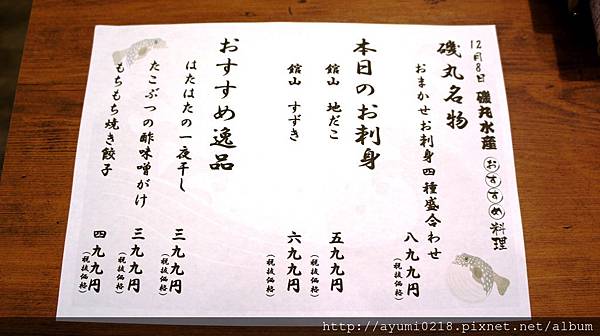 12月8日 磯丸水産 おすすめ料理
磯丸名物
おまかせお刺身四種盛合わせ 八九九円(税抜価格)
本日のお刺身
館山 地だこ 五九九円(税抜価格)
館山 すずき 六九九円(税抜価格)
おすすめ逸品
はたはたの一夜干し 三九九円(税抜価格)
たこぶつの酢味噌がけ 三九九円(税抜価格)
もちもち焼き餃子 四九九円(税抜価格)
http://ayumi0218.pixnet.net/album